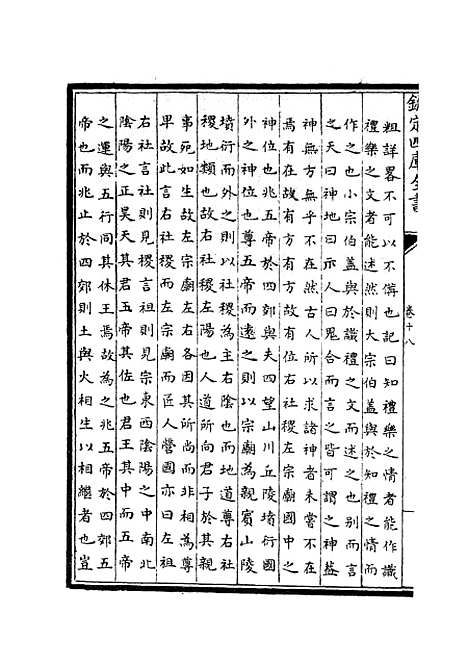 欽定四庫全書
卷十八
粗詳畧不可以不僃也記曰知禮樂之情者能作識
禮樂之文者能述然則大宗伯蓋與於知禮之情而
作之也小宗伯蓋與於識禮之文而述之也别而言
之天曰神地曰示人曰鬼合而言之皆可謂之神葢
神無方無乎不在然古人所以求諸神者未嘗不在
焉有在故有方有方故有位右社稷左宗廟國中之
神位也兆五帝於四郊與夫四望山川丘陵墳衍國
外之神位也尊五帝而遠之則以宗廟為親賓山陵
墳衍而外之則以社稷為主右陰也而地道尊右社
稷地類也故右社稷左陽也人道所尚君子於其親
事死如生故左宗廟左右各因其所尚而非相為尊
卑故此言右社稷左宗廟而匠人營國亦曰左祖
右社言社則見稷言祖則見宗東西陰陽之中南北
陰陽之正昊天其君五帝其佐也君王其中而五帝
之運與五行同其休王焉故為之兆五帝於四郊五
帝也而兆止於四郊則土與火相生以相繼者也豈